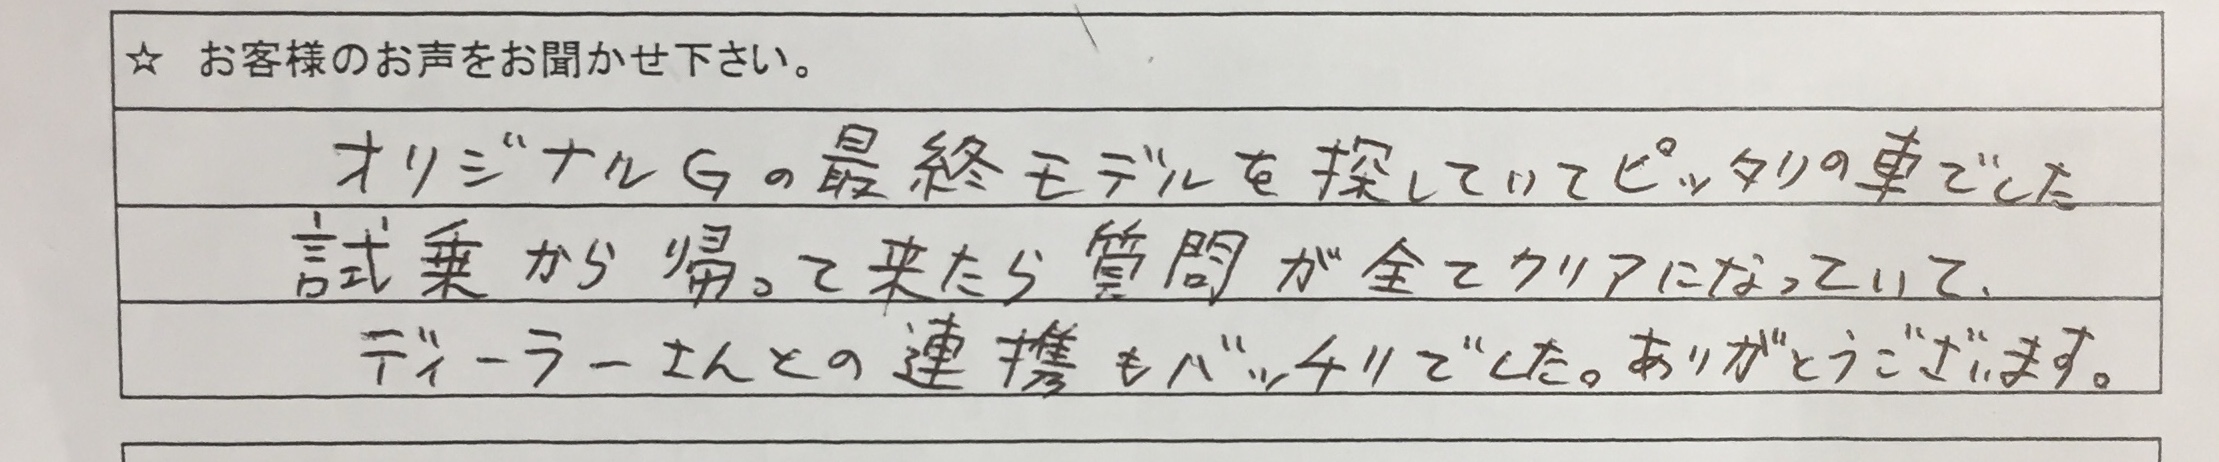 ☆ お客様のお声をお聞かせ下さい。
オリジナルGの最終モデルを探していてピッタリの車でした
試乗から帰って来たら質問が全てクリアになっていて、
ディーラーさんとの連携もバッチリでした。ありがとうございます。